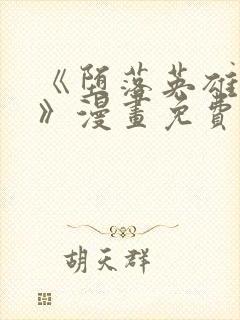 《堕落英雄
》漫畫免費
胡天群